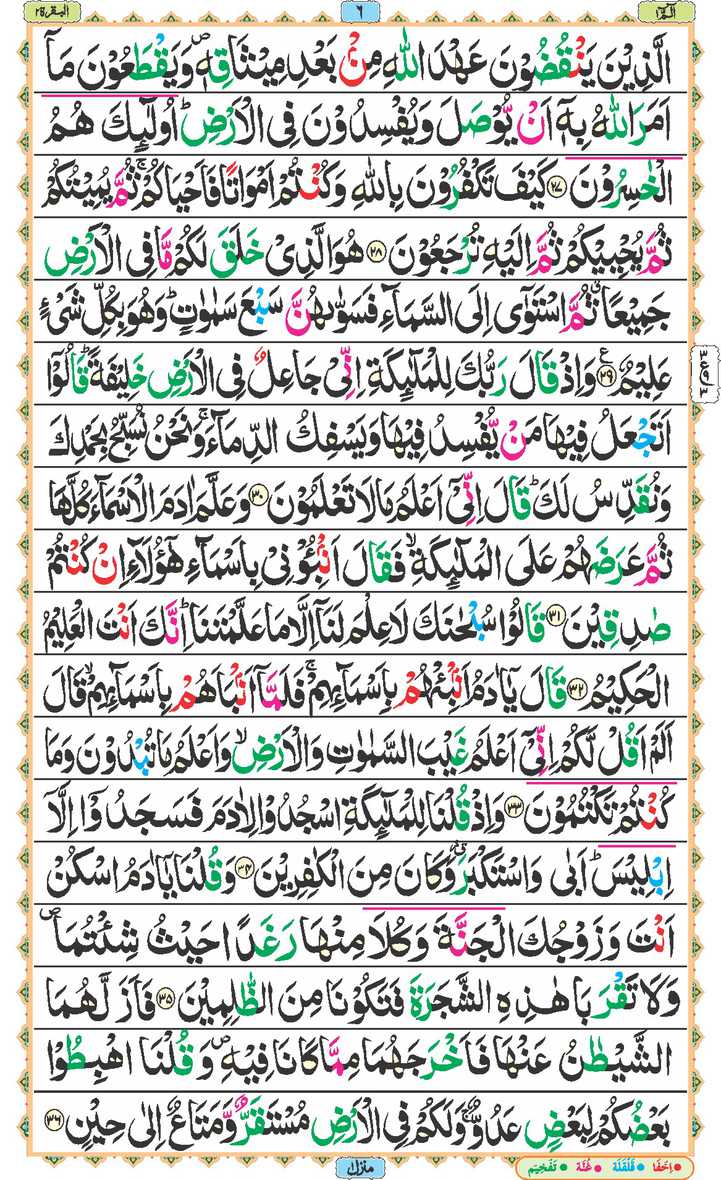 البقرة ٢
٦
الٓمّٓ ١
الَّذِيْنَ يَنْقُضُوْنَ عَهْدَ اللّٰهِ مِنْۢ بَعْدِ مِيْثَاقِهٖ۪ وَيَقْطَعُوْنَ مَاۤ
اَمَرَ اللّٰهُ بِهٖۤ اَنْ يُّوْصَلَ وَيُفْسِدُوْنَ فِى الْاَرْضِؕ اُولٰٓئِكَ هُمُ
الْخٰسِرُوْنَ ﴿۲۷﴾ كَيْفَ تَكْفُرُوْنَ بِاللّٰهِ وَكُنْتُمْ اَمْوَاتًا فَاَحْيَاكُمْۚ ثُمَّ يُمِيْتُكُمْ
ثُمَّ يُحْيِيْكُمْ ثُمَّ اِلَيْهِ تُرْجَعُوْنَ ﴿۲۸﴾ هُوَ الَّذِىْ خَلَقَ لَكُمْ مَّا فِى الْاَرْضِ
جَمِيْعًاۗ ثُمَّ اسْتَوٰۤى اِلَى السَّمَآءِ فَسَوّٰىهُنَّ سَبْعَ سَمٰوٰتٍؕ وَهُوَ بِكُلِّ شَىْءٍ
عَلِيْمٌ ﴿۲۹﴾ ع وَاِذْ قَالَ رَبُّكَ لِلْمَلٰٓئِكَةِ اِنِّىْ جَاعِلٌ فِى الْاَرْضِ خَلِيْفَةًؕ قَالُوْۤا
اَتَجْعَلُ فِيْهَا مَنْ يُّفْسِدُ فِيْهَا وَيَسْفِكُ الدِّمَآءَۚ وَنَحْنُ نُسَبِّحُ بِحَمْدِكَ
وَنُقَدِّسُ لَكَؕ قَالَ اِنِّىْۤ اَعْلَمُ مَا لَا تَعْلَمُوْنَ ﴿۳۰﴾ وَعَلَّمَ اٰدَمَ الْاَسْمَآءَ كُلَّهَا
ثُمَّ عَرَضَهُمْ عَلَى الْمَلٰٓئِكَةِۙ فَقَالَ اَنْۢبِـُٔوْنِىْ بِاَسْمَآءِ هٰٓؤُلَآءِ اِنْ كُنْتُمْ
صٰدِقِيْنَ ﴿۳۱﴾ قَالُوْا سُبْحٰنَكَ لَا عِلْمَ لَنَاۤ اِلَّا مَا عَلَّمْتَنَاؕ اِنَّكَ اَنْتَ الْعَلِيْمُ
الْحَكِيْمُ ﴿۳۲﴾ قَالَ يٰۤاٰدَمُ اَنْۢبِئْهُمْ بِاَسْمَآئِهِمْۚ فَلَمَّاۤ اَنْۢبَاَهُمْ بِاَسْمَآئِهِمْۙ قَالَ
اَلَمْ اَقُلْ لَّكُمْ اِنِّىْۤ اَعْلَمُ غَيْبَ السَّمٰوٰتِ وَالْاَرْضِۙ وَاَعْلَمُ مَا تُبْدُوْنَ وَمَا
كُنْتُمْ تَكْتُمُوْنَ ﴿۳۳﴾ وَاِذْ قُلْنَا لِلْمَلٰٓئِكَةِ اسْجُدُوْا لِاٰدَمَ فَسَجَدُوْۤا اِلَّاۤ
اِبْلِيْسَؕ اَبٰى وَاسْتَكْبَرَۗ وَكَانَ مِنَ الْكٰفِرِيْنَ ﴿۳۴﴾ وَقُلْنَا يٰۤاٰدَمُ اسْكُنْ
اَنْتَ وَزَوْجُكَ الْجَنَّةَ وَكُلَا مِنْهَا رَغَدًا حَيْثُ شِئْتُمَا۪
وَلَا تَقْرَبَا هٰذِهِ الشَّجَرَةَ فَتَكُوْنَا مِنَ الظّٰلِمِيْنَ ﴿۳۵﴾ فَاَزَلَّهُمَا
الشَّيْطٰنُ عَنْهَا فَاَخْرَجَهُمَا مِمَّا كَانَا فِيْهِ۪ وَقُلْنَا اهْبِطُوْا
بَعْضُكُمْ لِبَعْضٍ عَدُوٌّۚ وَلَكُمْ فِى الْاَرْضِ مُسْتَقَرٌّ وَّمَتَاعٌ اِلٰى حِيْنٍ ﴿۳۶﴾
منزل
اِخْفَا قَلْقَلَة غُنَّة تَفْخِيْم